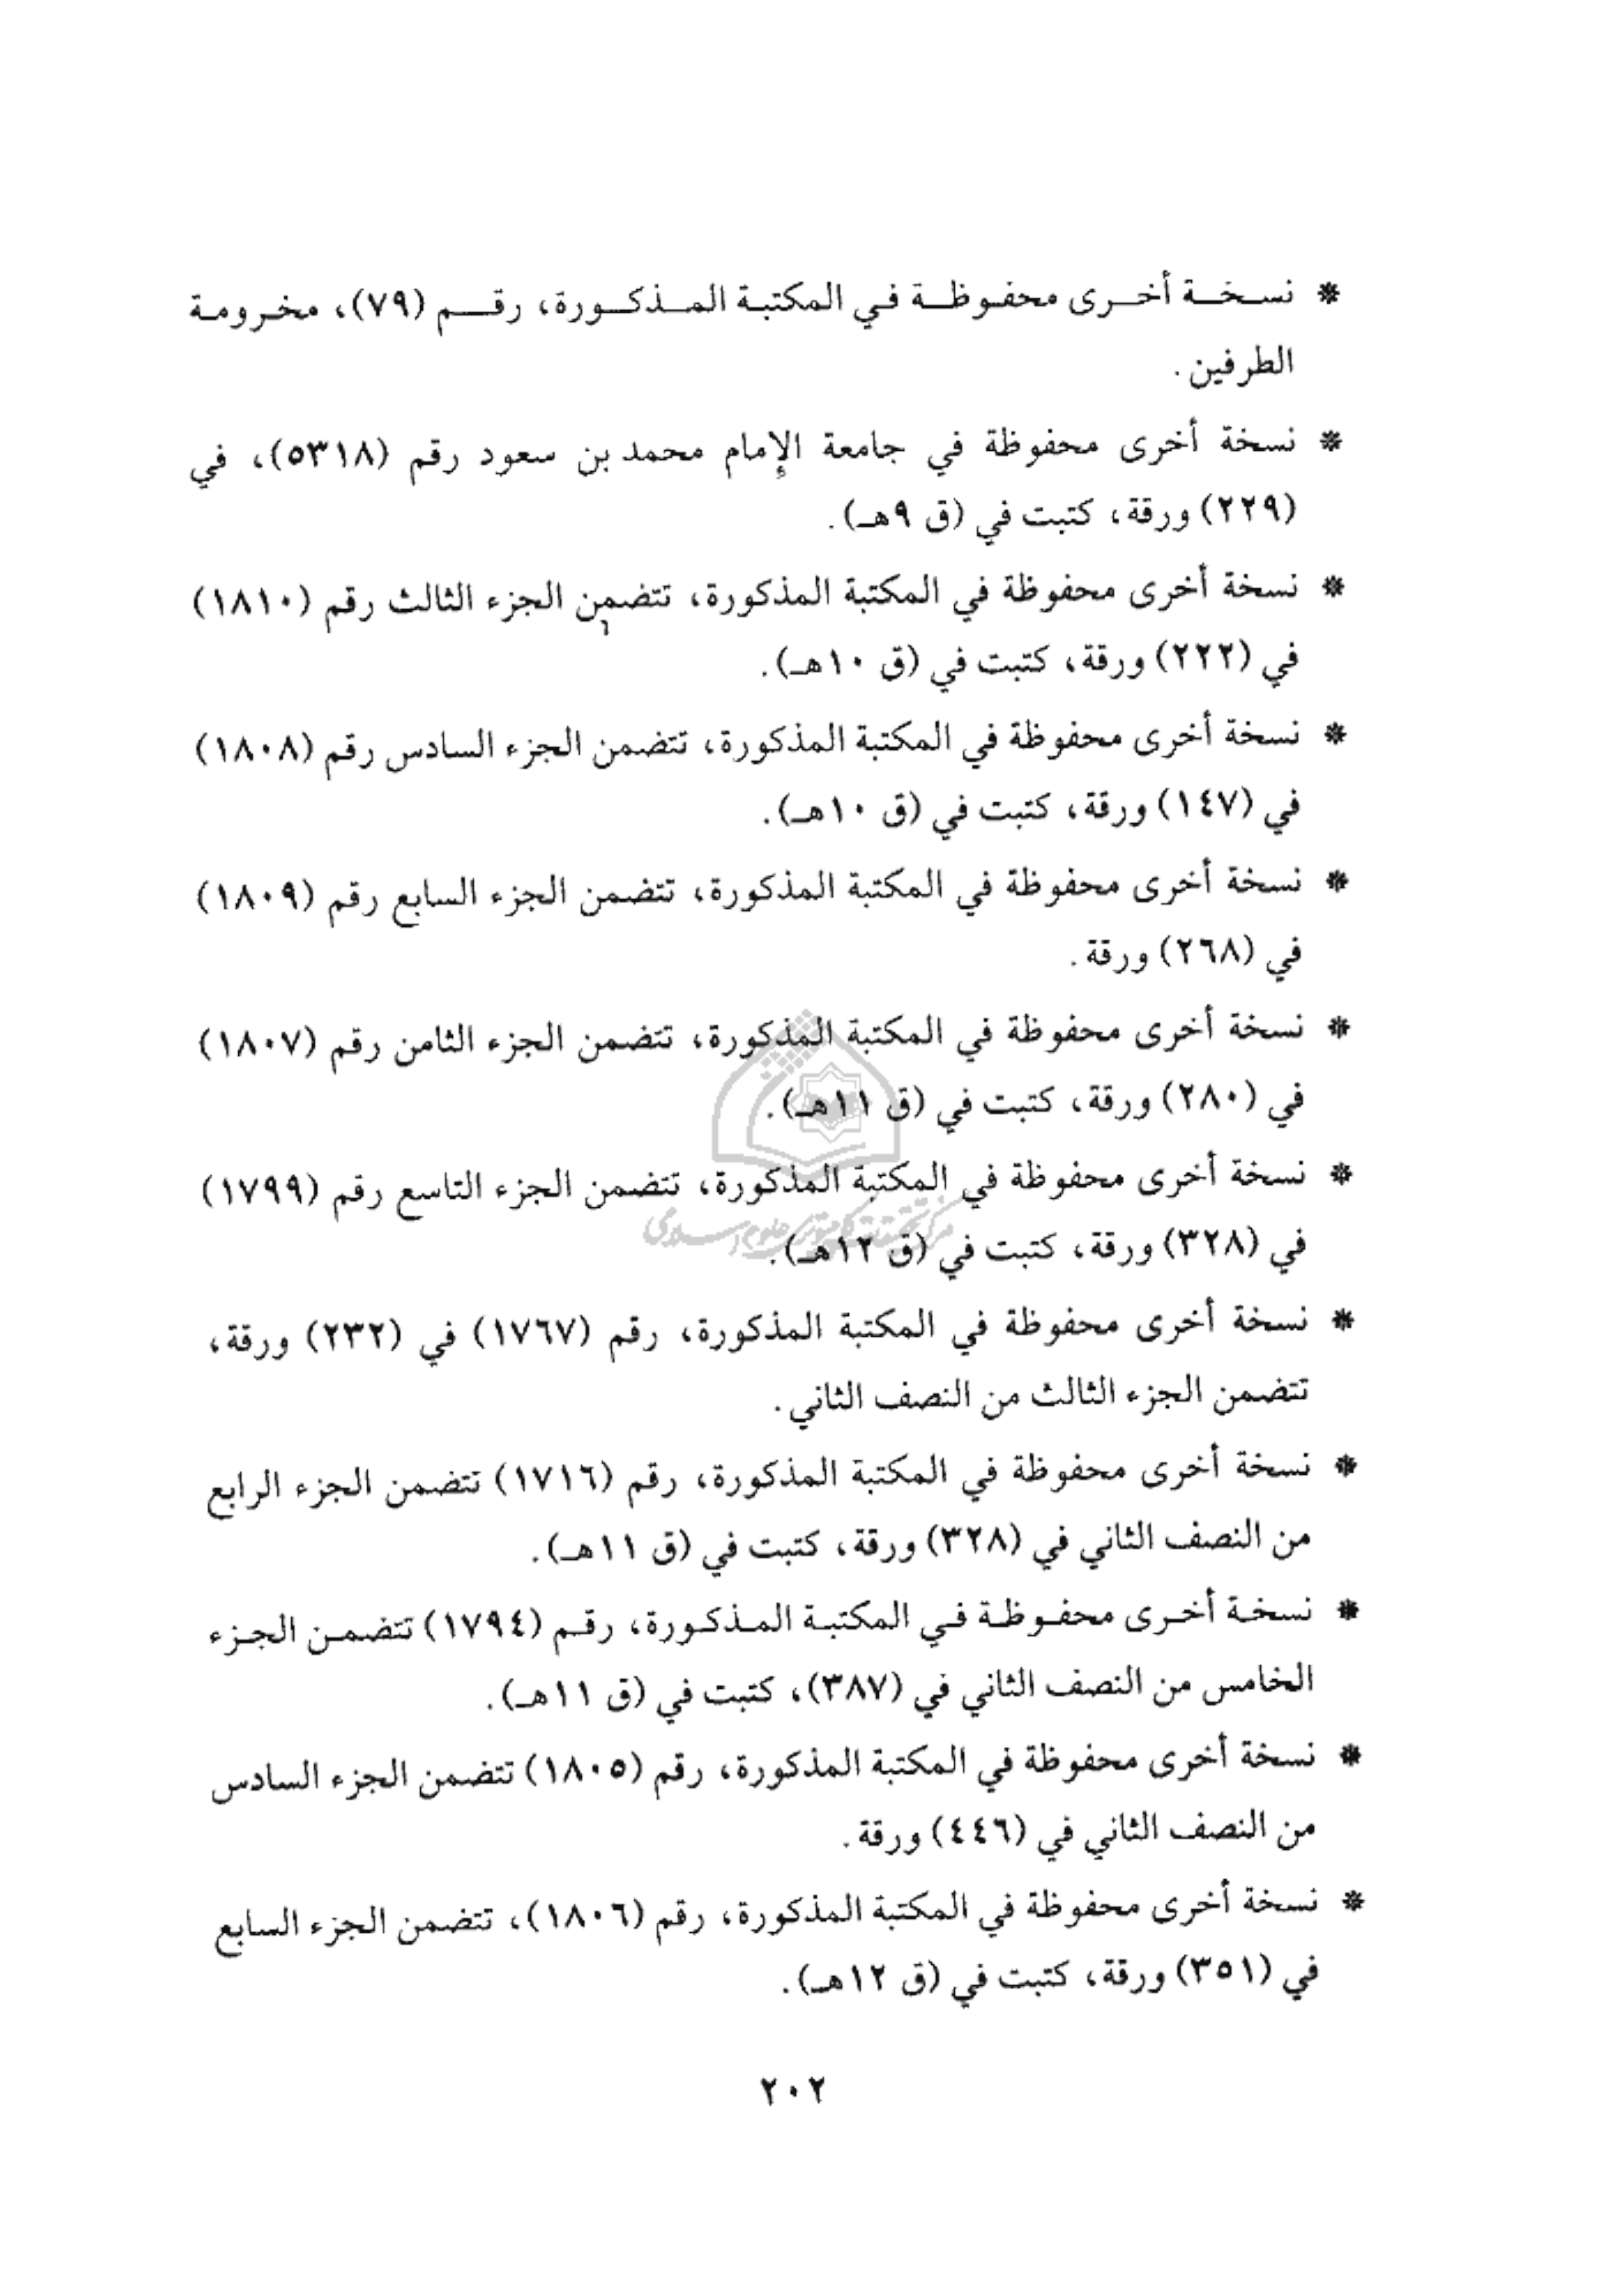 * نسخة أخرى محفوظة في المكتبة المذكورة، رقم (٧٩)، مخرومة
الطرفين.
* نسخة أخرى محفوظة في جامعة الإمام محمد بن سعود رقم (٥٣١٨)، في
(٢٢٩) ورقة، كتبت في (ق ٩هـ).
* نسخة أخرى محفوظة في المكتبة المذكورة، تتضمن الجزء الثالث رقم (١٨١٠)
في (٢٢٢) ورقة، كتبت في (ق ١٠هـ).
* نسخة أخرى محفوظة في المكتبة المذكورة، تتضمن الجزء السادس رقم (١٨٠٨)
في (١٤٧) ورقة، كتبت في (ق ١٠هـ).
* نسخة أخرى محفوظة في المكتبة المذكورة، تتضمن الجزء السابع رقم (١٨٠٩)
في (٢٦٨) ورقة.
* نسخة أخرى محفوظة في المكتبة المذكورة، تتضمن الجزء الثامن رقم (١٨٠٧)
في (٢٨٠) ورقة، كتبت في (ق ١١هـ).
* نسخة أخرى محفوظة في المكتبة المذكورة، تتضمن الجزء التاسع رقم (١٧٩٩)
مرکز تحقیقات کامپیوتری علوم اسلامی
في (٣٢٨) ورقة، كتبت في (ق ١٢هـ).
* نسخة أخرى محفوظة في المكتبة المذكورة، رقم (١٧٦٧) في (٢٣٢) ورقة،
تتضمن الجزء الثالث من النصف الثاني.
* نسخة أخرى محفوظة في المكتبة المذكورة، رقم (١٧١٦) تتضمن الجزء الرابع
من النصف الثاني في (٣٢٨) ورقة، كتبت في (ق ١١هـ).
* نسخة أخرى محفوظة في المكتبة المذكورة، رقم (١٧٩٤) تتضمن الجزء
الخامس من النصف الثاني في (٣٨٧)، كتبت في (ق ١١هـ).
* نسخة أخرى محفوظة في المكتبة المذكورة، رقم (١٨٠٥) تتضمن الجزء السادس
من النصف الثاني في (٤٤٦) ورقة.
* نسخة أخرى محفوظة في المكتبة المذكورة، رقم (١٨٠٦)، تتضمن الجزء السابع
في (٣٥١) ورقة، كتبت في (ق ١٢هـ).
٢٠٢